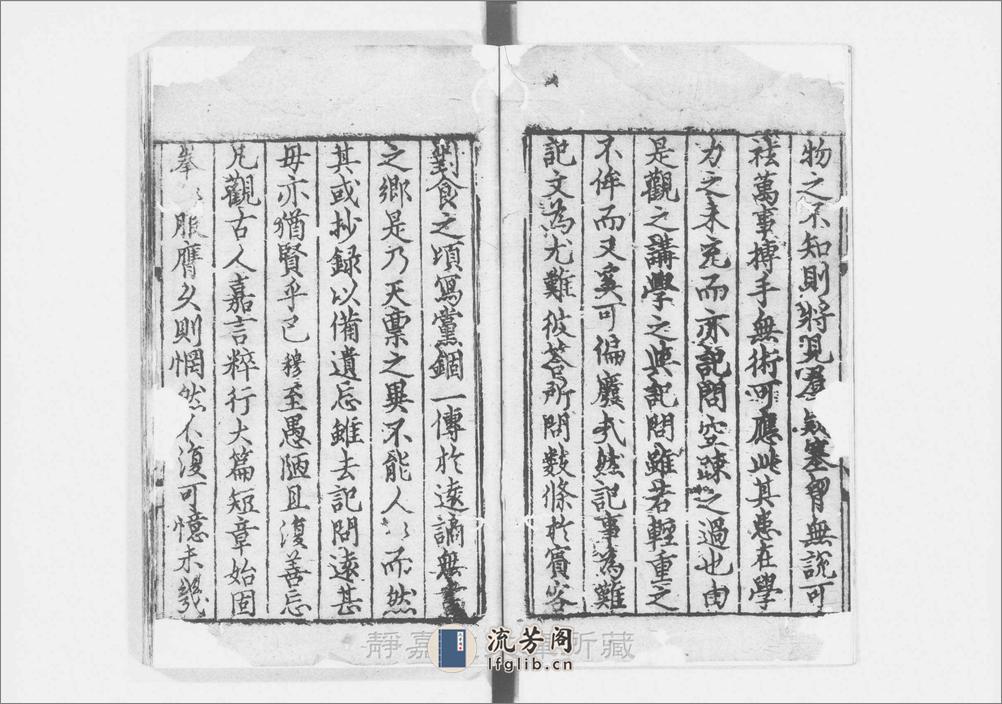 物之不知則將見羣疑塞胷無說可
祛萬事搏手無術可應此其患在學
力之未充而亦記問空疎之過也由
是觀之講學之與記問雖若輕重之
不侔而又奚可偏廢哉然記事為難
記文為尤難彼答所問數條於賓客
對食之頃寫黨錮一傳於遠謫無書
之鄉是乃天禀之異不能人〻而然
其或抄録以備遺忘雖去記問遠甚
毋亦猶賢乎已穆至愚陋且復善忘
凡觀古人嘉言粹行大篇短章始固
拳〻服膺久則惘然不復可憶未幾
靜嘉 所藏
流芳阁
lfglib.cn